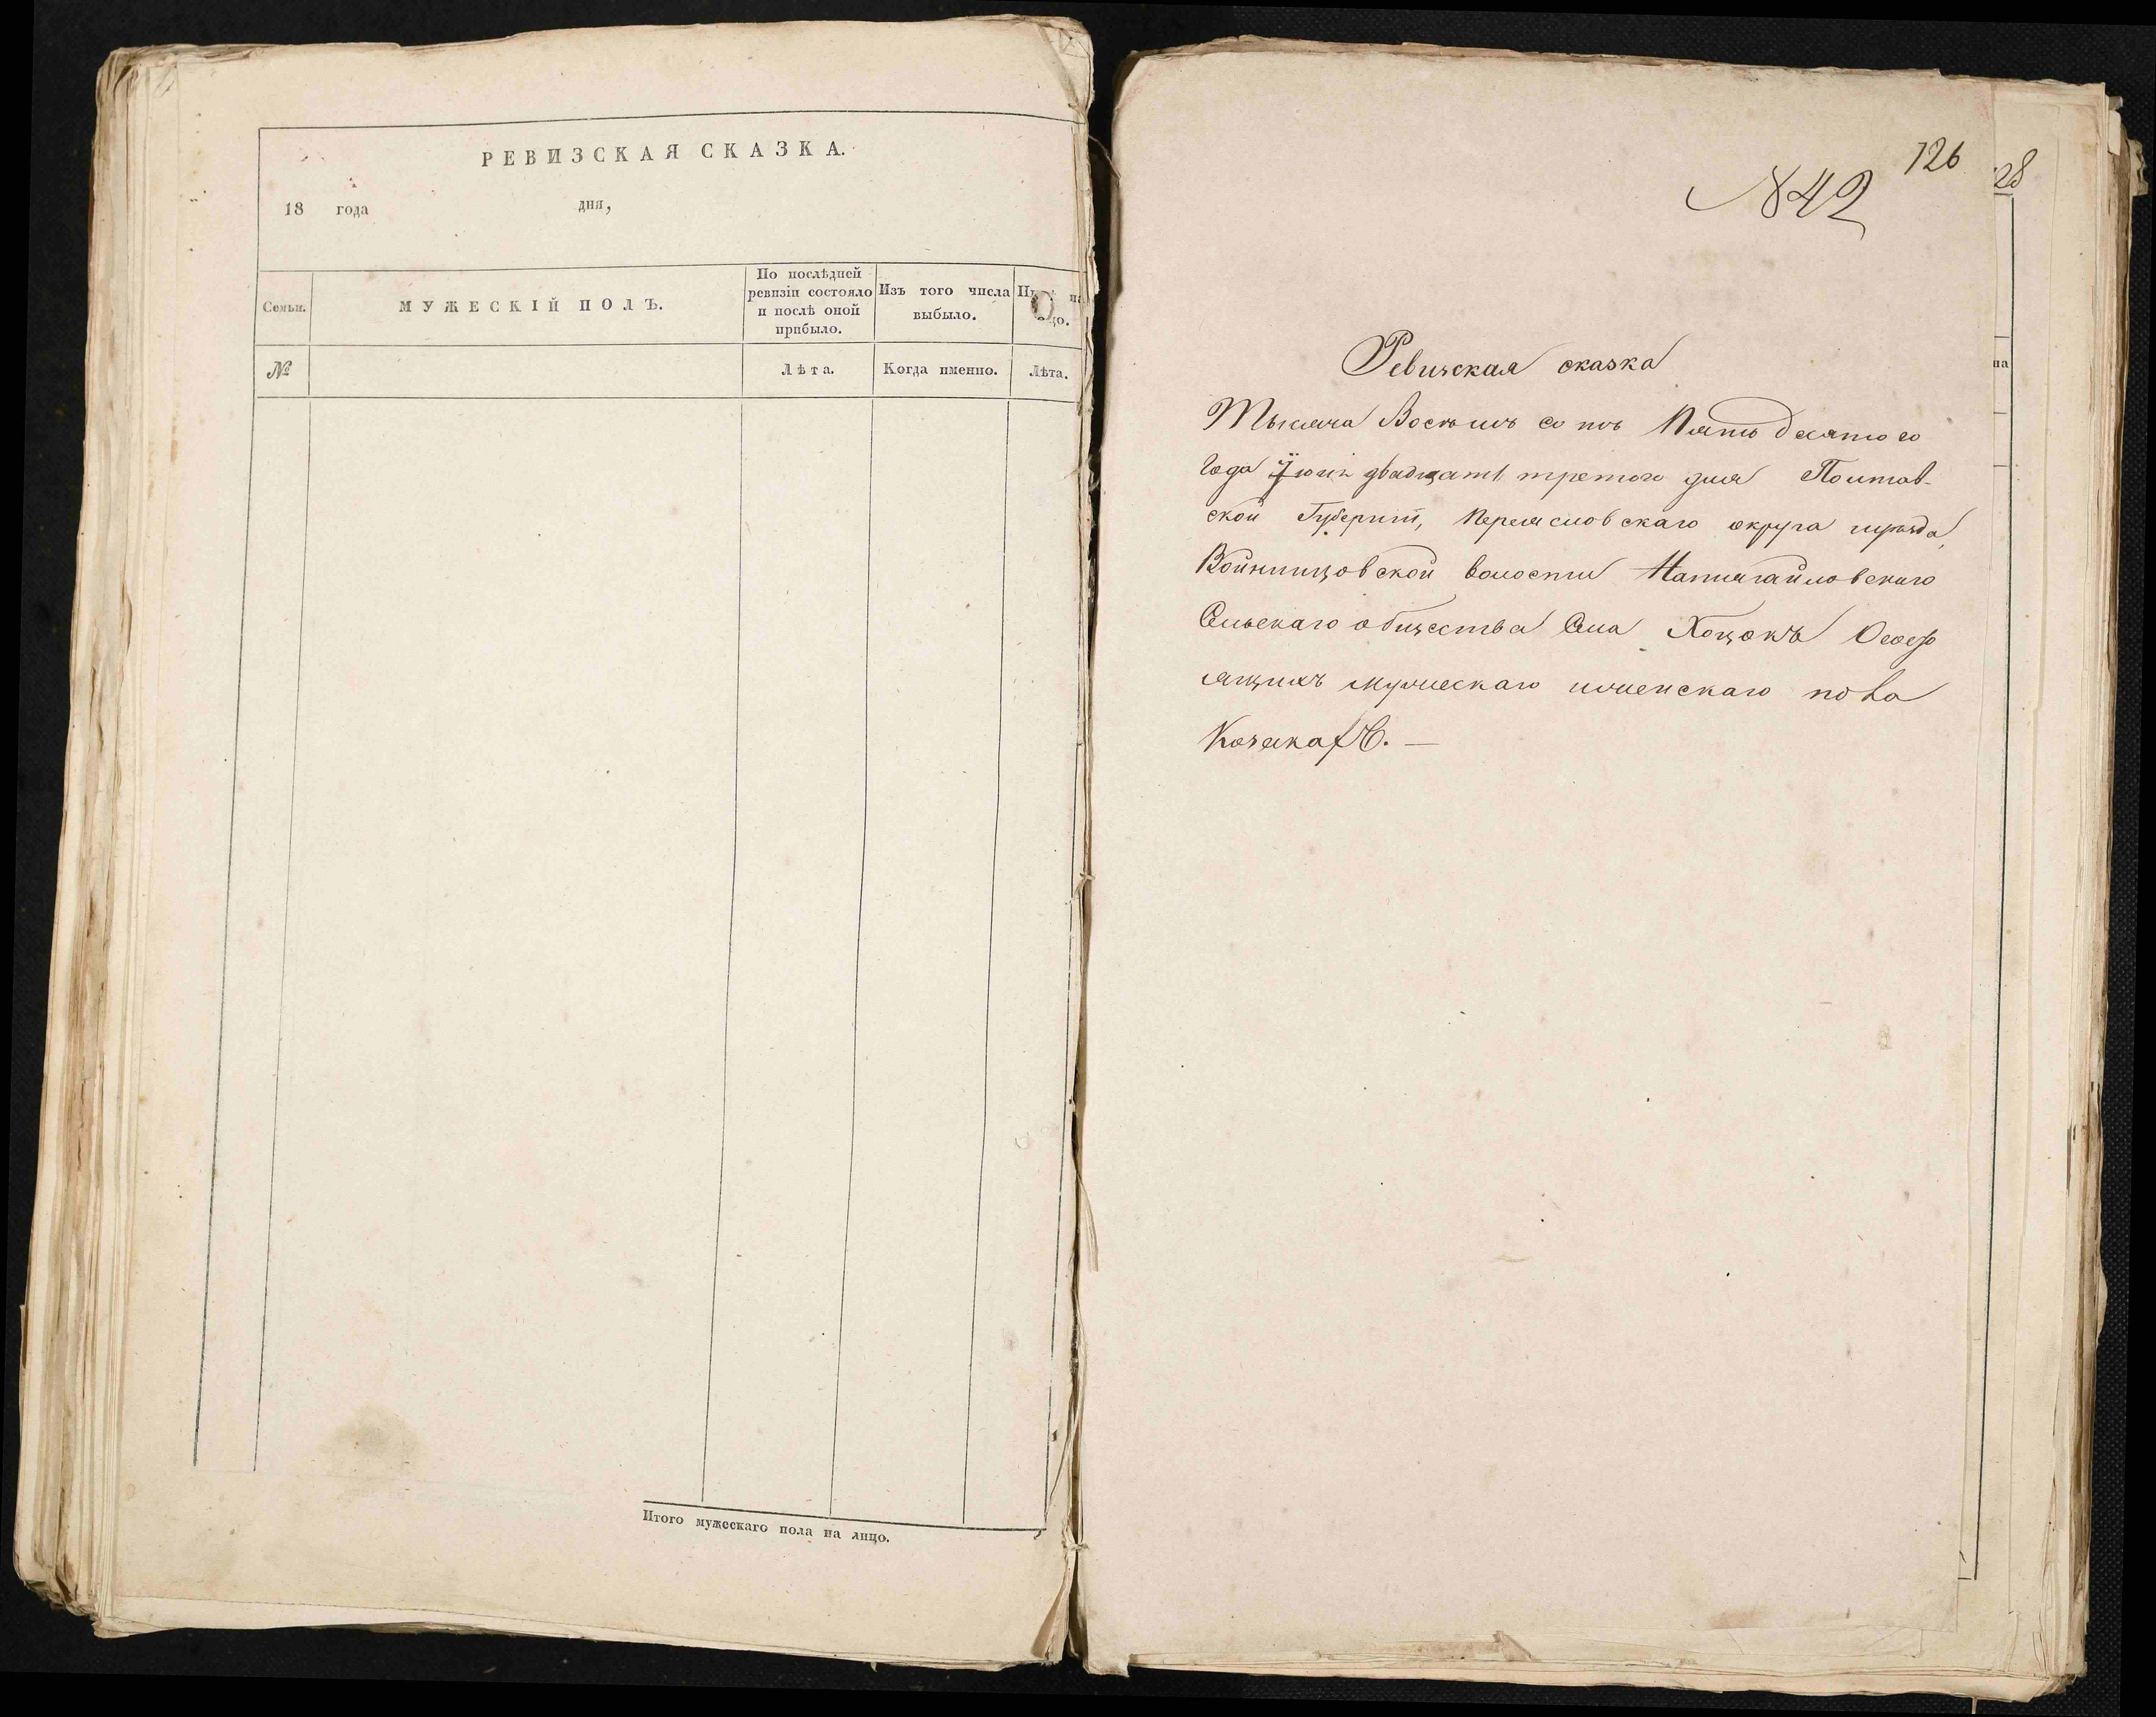 РЕВИЗСКАЯ СКАЗКА.
18 года дня,
Семьи. МУЖЕСКІЙ ПОЛЪ. По послѣдней ревизіи состояло и послѣ оной прибыло. Изъ того числа выбыло.
№ Лѣта. Когда именно. Лѣта.
Итого мужескаго пола на лицо.
126
№ 42
28
на
Ревизская сказка
Тысяча Восемь сотъ Пятьдесятого
Года Іюня двадцать третого дня Полтав-
ской Губерніи, Переясловскаго округа уѣзда,
Войтинцовской волости
Сельскаго общества Села Хоцокъ О
ящихъ мужескаго иженскаго пола
Козакахъ. —